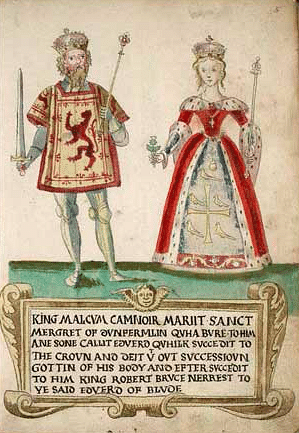 KING MALCVM CAMNOIR MARIIT SANCT
MERGRET OF DVNFERMLIN QVHA BVRE TO HIM
ANE SONE CALLIT EDVERD QVHILK SVCCEDIT TO
THE CROVN AND DEIT V OVT SUCCESSIOVN
GOTTIN OF HIS BODY AND EFTER SVCCEDIT
TO HIM KING ROBERT BRVCE NERREST TO
YE SAID EDVERD OF BLVDE